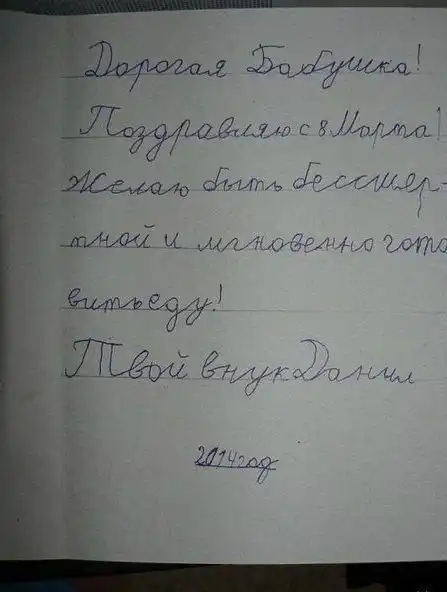 Дорогая Бабушка!
Поздравляю с 8 Марта!
Желаю быть бессмер-
тной и мгновенно гото
вить еду!
Твой внук Данил
2014 год